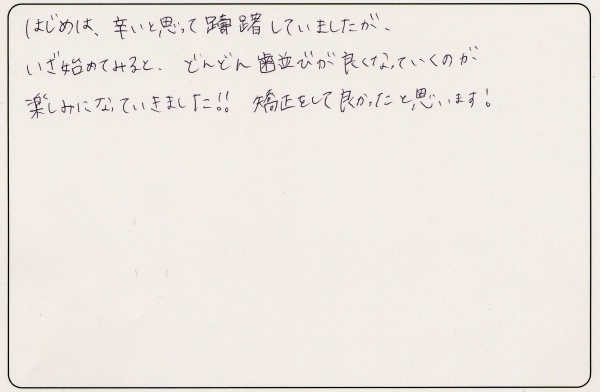 はじめは、辛いと思って躊躇していましたが、
いざ始めてみると、どんどん歯並びが良くなっていくのが
楽しみになっていきました!! 矯正をして良かったと思います!